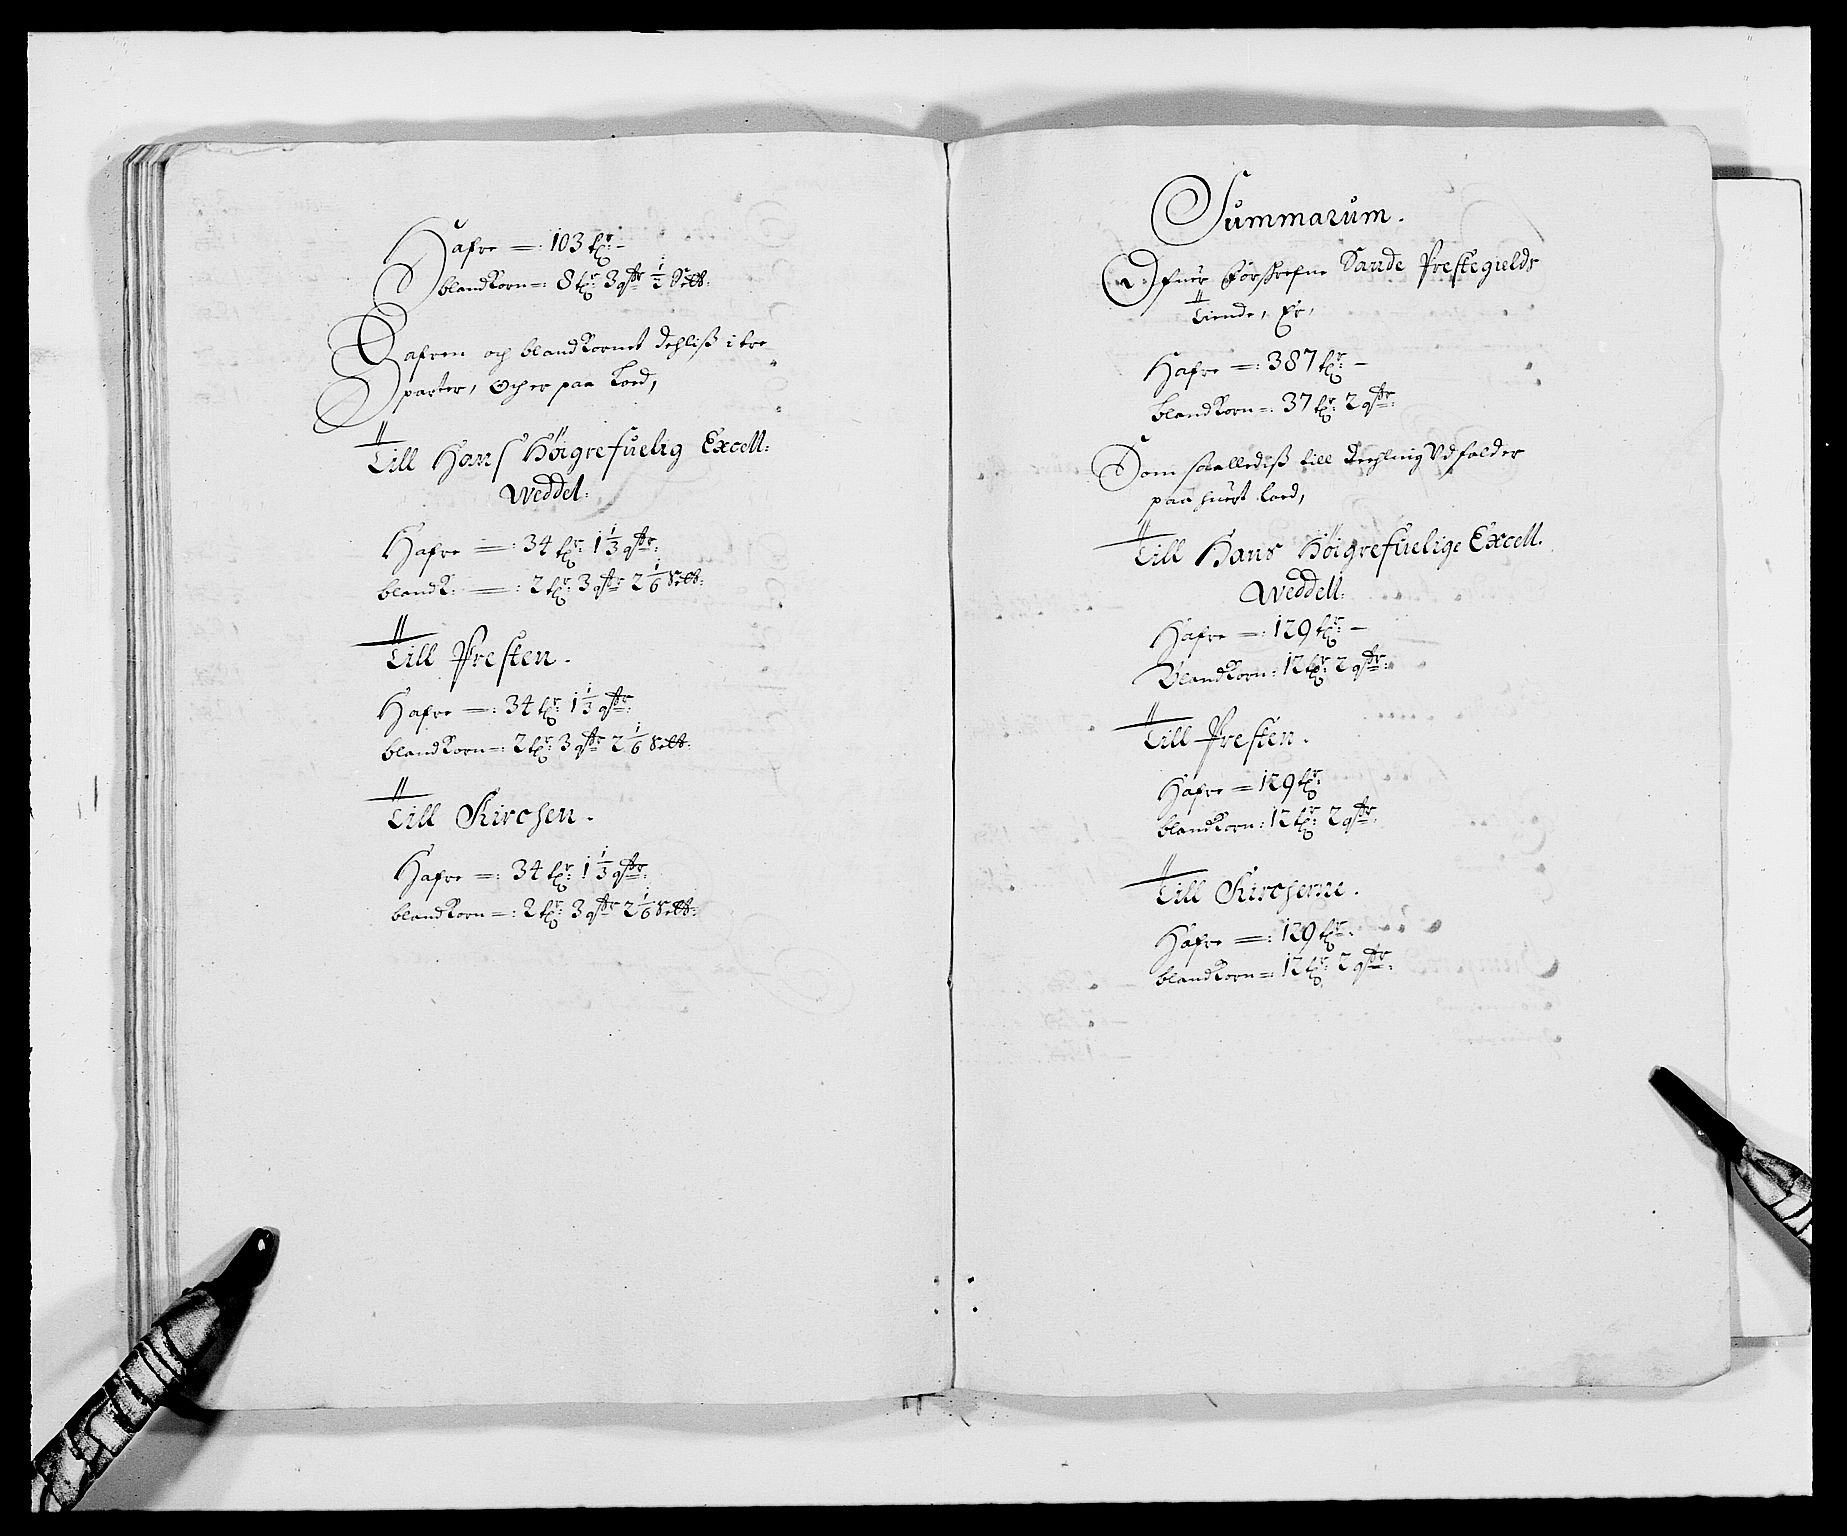 Hafre =: 103 tr: –
blandKorn =: 8 tr: 3 qrtr ½ Sett:
Hafren och blandKornet dehliß i tre
parter, Och er paa Loed,
Till Hans Höigrefuelig Excell:
Weddel:
Hafre =: 34 tr: 1⅓ qrtr:
blandK: =: 2 tr: 3 qrtr 2⅙ Sett:
Till Presten.
Hafre =: 34 tr: 1⅓ qrtr:
blandKorn =: 2 tr: 3 qrtr 2⅙ Sett:
Till Kirchen.
Hafre =: 34 tr: 1⅓ qrtr:
blandKorn =: 2 tr: 3 qrtr 2⅙ Sett:
Summarum.
Ofuer Forskrefne Sande Prestegields
Tiende, Er,
Hafre =: 387 tr: –
blandKorn =: 37 tr: 2 qrtr:
Som saallediß till Deehling Udfalder
paa huert Loed,
Till Hans Höigrefuelige Excell.
Weddell:
Hafre =: 129 tr: –
BlandKorn: 12 tr: 2 qrtr:
Till Presten.
Hafre = 129 tr:
blandKorn: 12 tr: 2 qrtr:
Till Kircherne.
Hafre =: 129 tr:
blandKorn =: 12 tr: 2 qrtr: